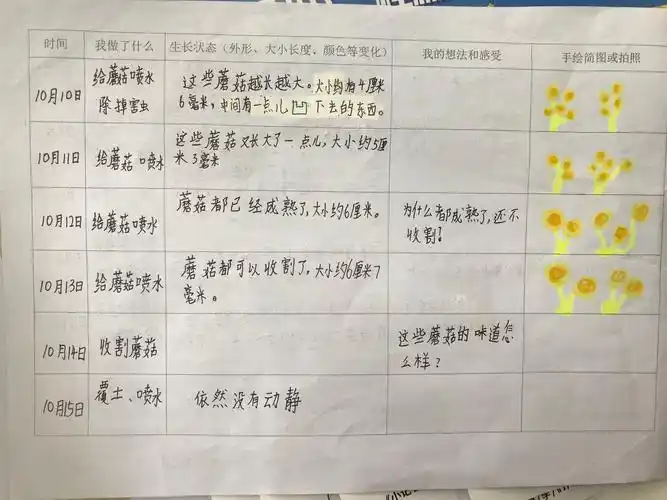 时间 我做了什么 生长状态（外形、大小长度、颜色等变化） 我的想法和感受 手绘简图或拍照
10月10日
给蘑菇喷水
除掉害虫
这些蘑菇越长越大。大小约有4厘米
6毫米，中间有一点儿凹下去的东西。
10月11日
给蘑菇喷水
这些蘑菇又长大了一点儿，大小约5厘
米3毫米
10月12日
给蘑菇喷水
蘑菇都已经成熟了，大小约6厘米。
为什么都成熟了，还不
收割？
10月13日
给蘑菇喷水
蘑菇都可以收割了，大小约6厘米7
毫米。
10月14日
收割蘑菇
这些蘑菇的味道怎
么样？
10月15日
覆土、喷水
依然没有动静